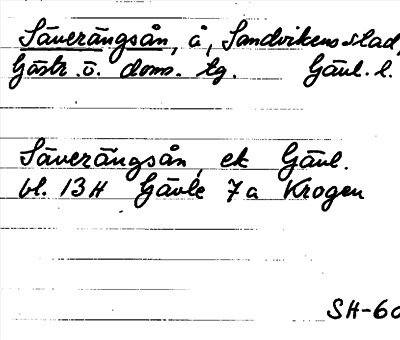 Säverängsån, å, Sandvikens stad,
Gästr. ö. doms. tg. Gävl. l.
Säverängsån, ek Gävl.
bl. 13H Gävle 7a Krogen
SH-60